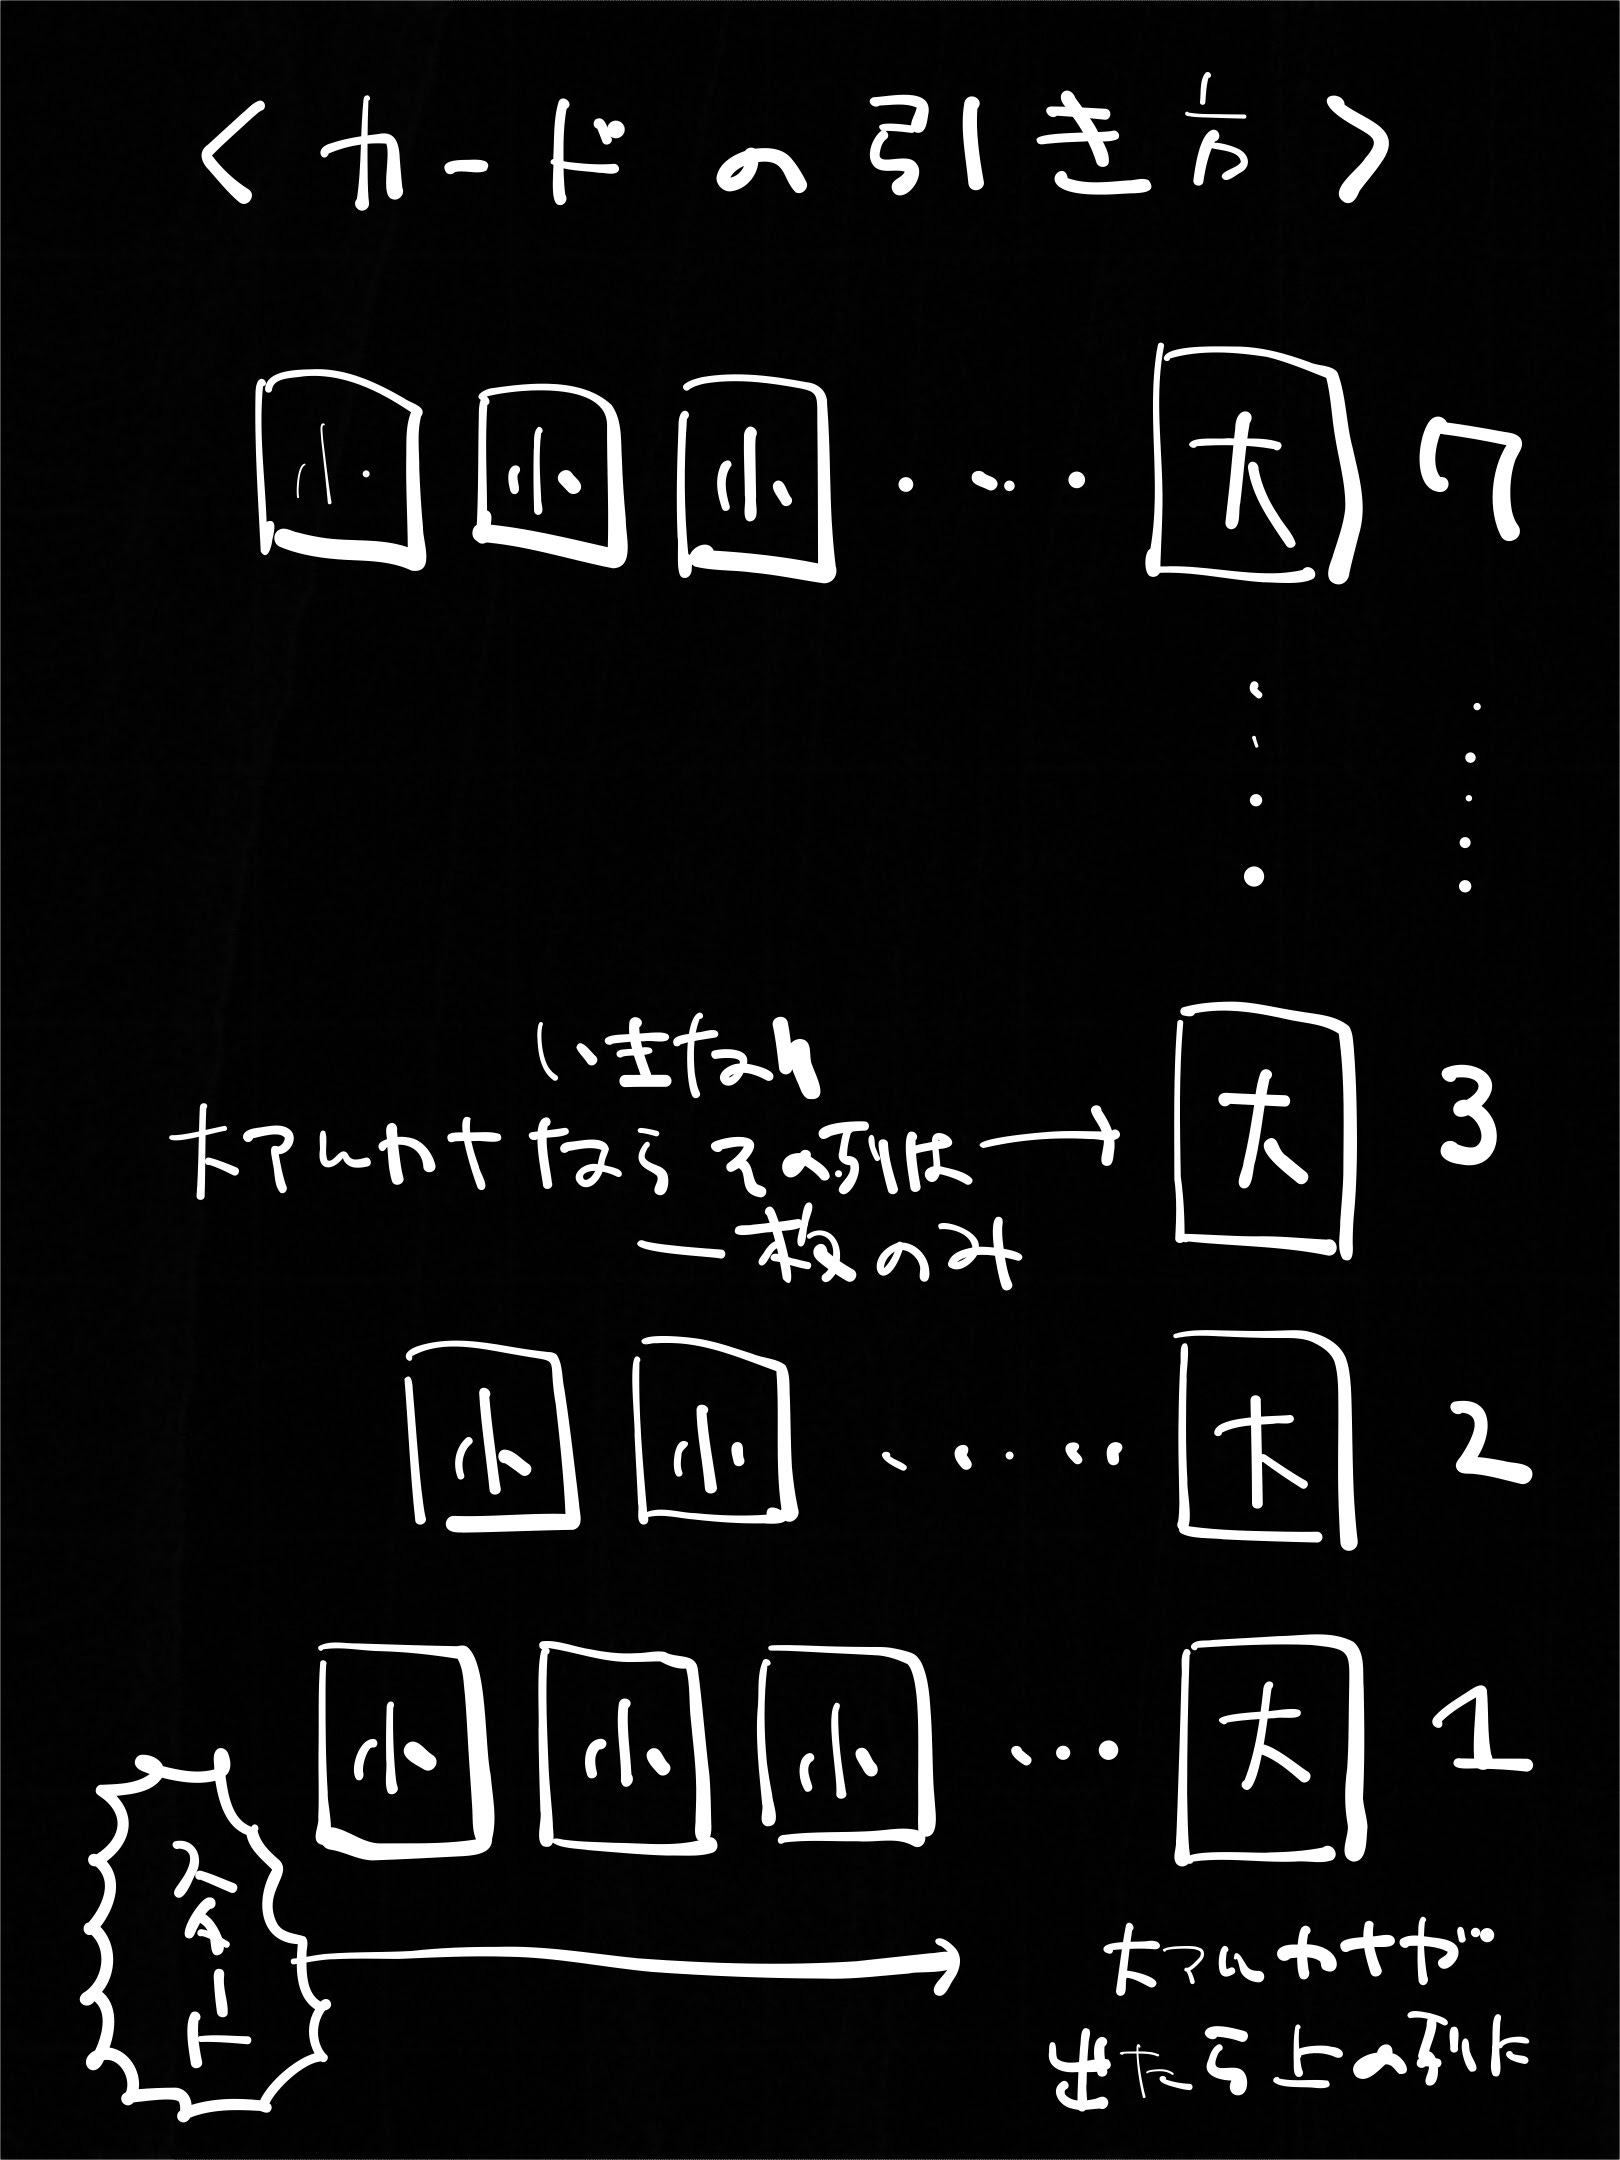 <カードの引き方>
小 小 小 ・・・・ 大 7
いきなり
大アルカナならその列は→ 大 3
一枚のみ
小 小 ・・・・・ 大 2
小 小 小 ・・・ 大 1
スタート
大アルカナが
出たら上の列に